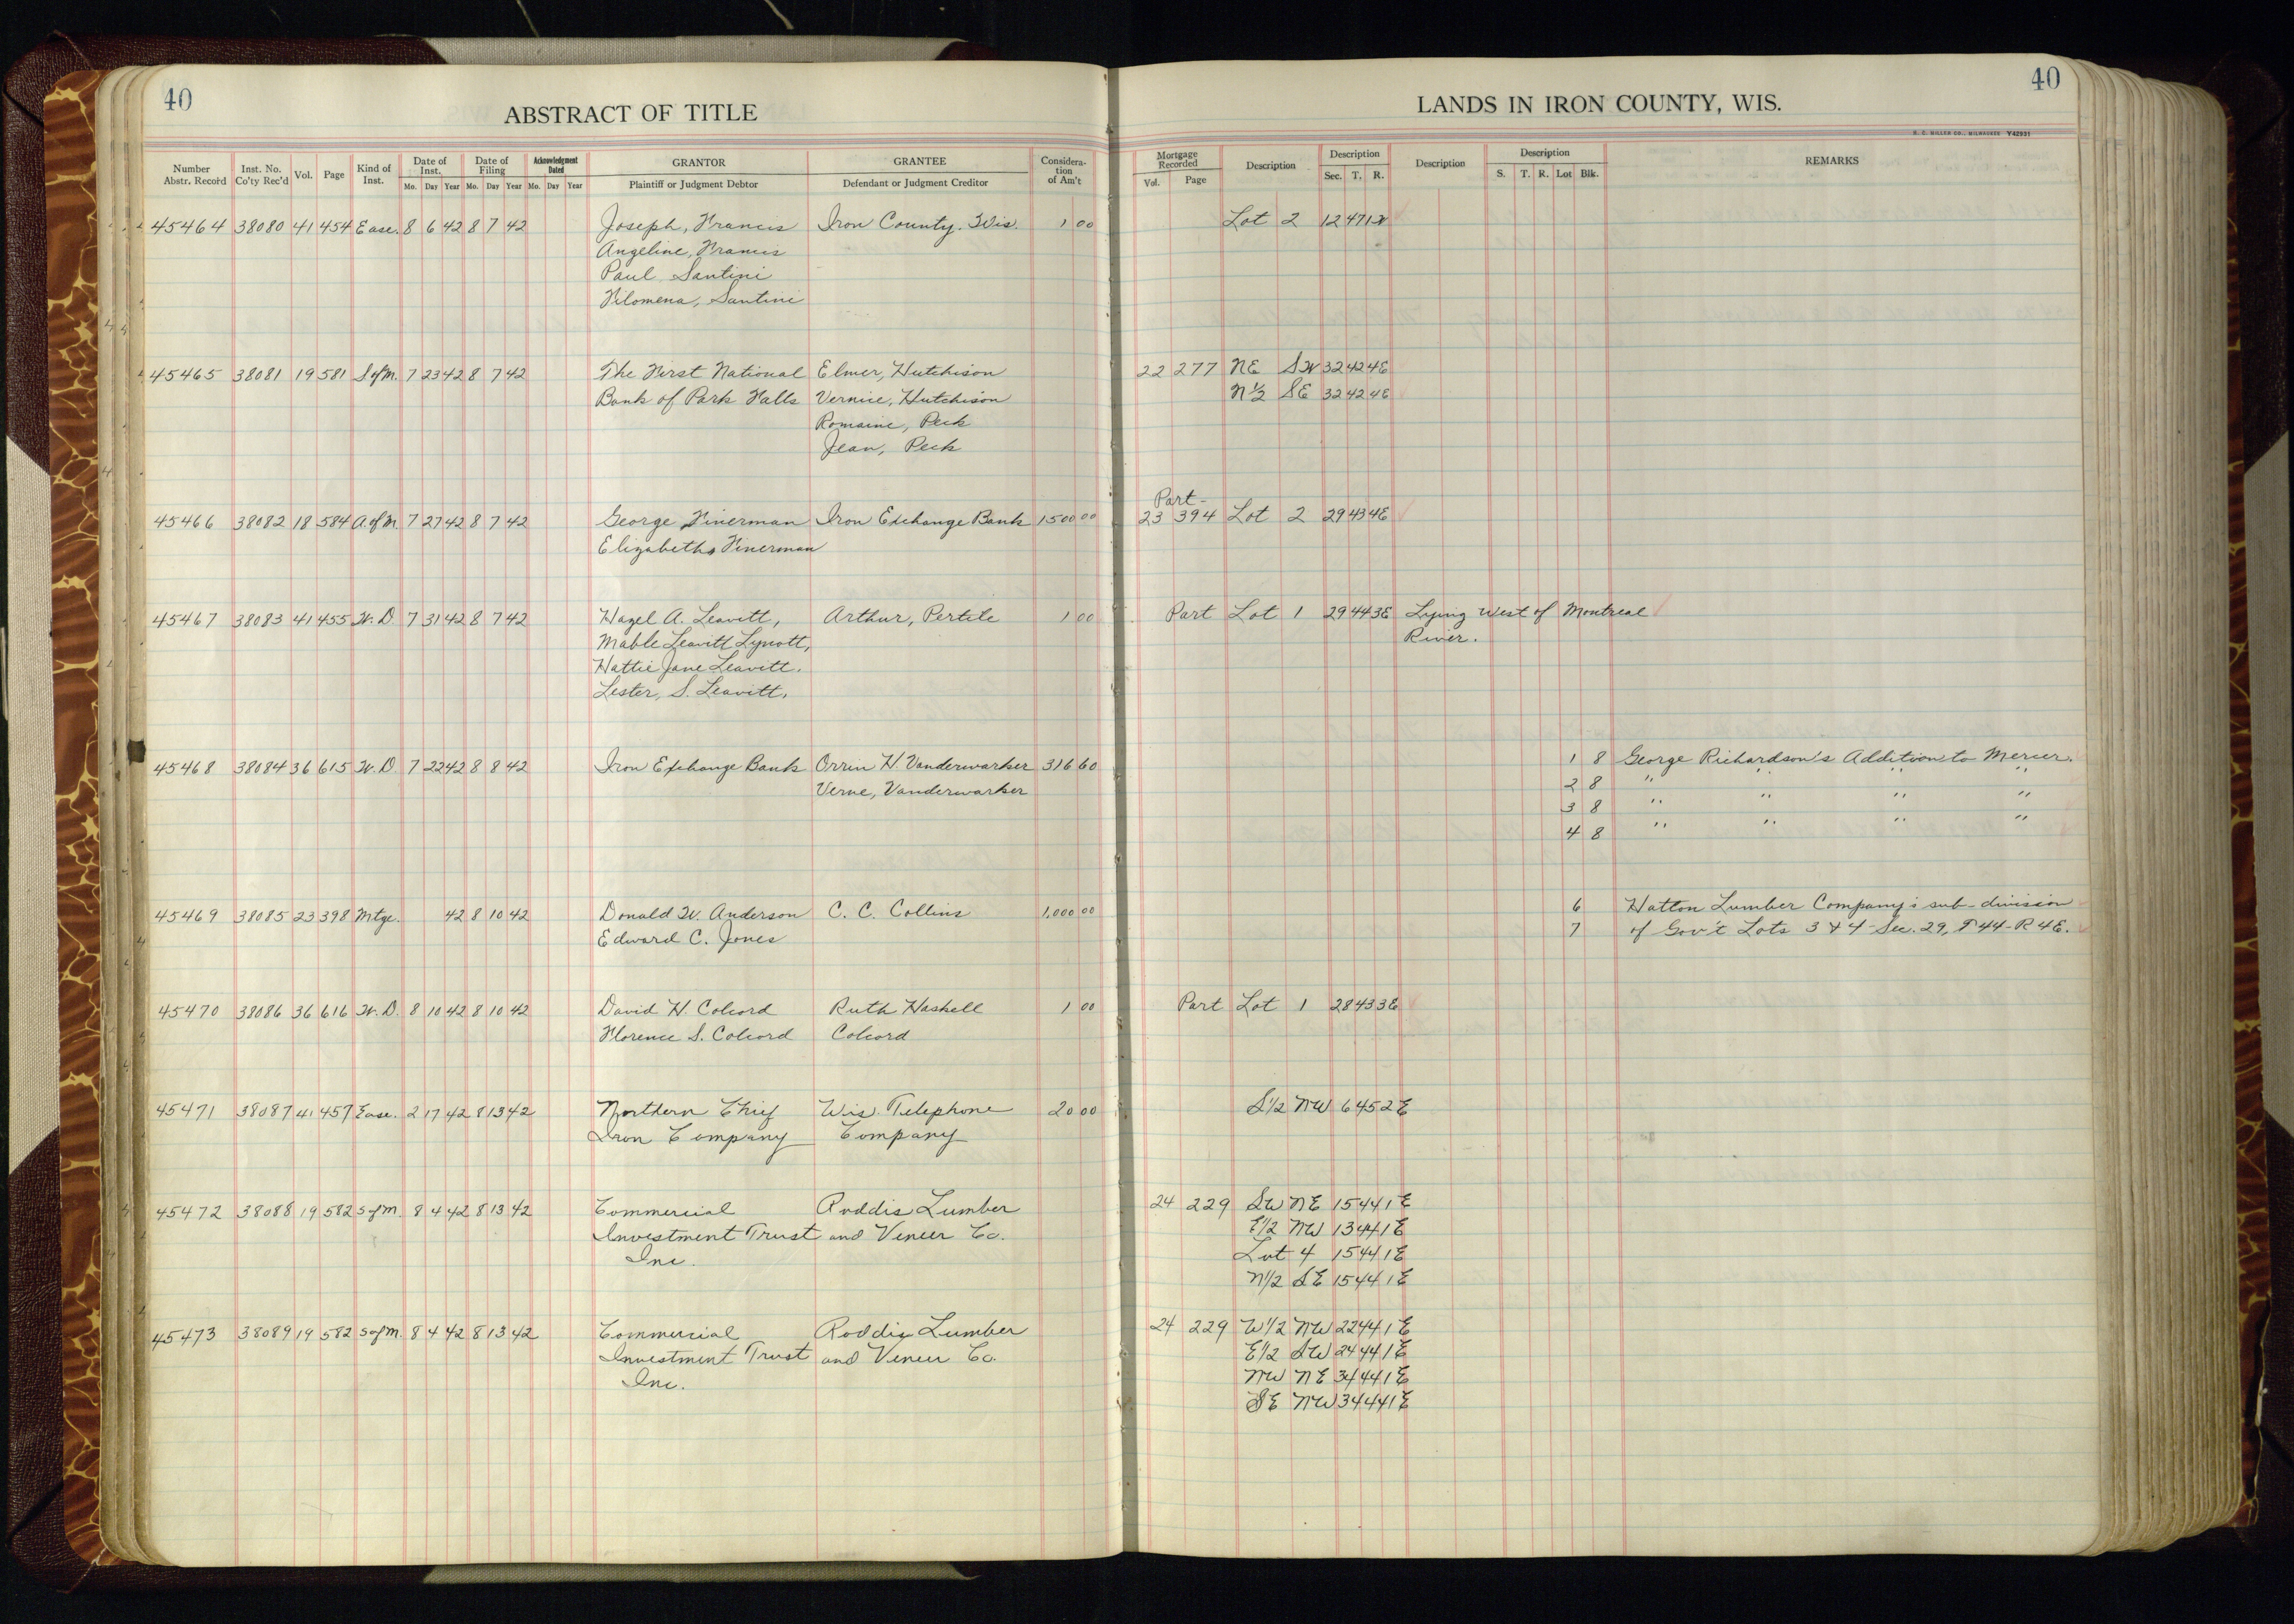 40
ABSTRACT OF TITLE
LANDS IN IRON COUNTY, WIS.
40
H. C. MILLER CO., MILWAUKEE Y42931
Number Abstr. Record Inst. No. Co'ty Rec'd Vol. Page Kind of Inst. Date of Inst. Mo. Day Year Date of Filing Mo. Day Year Acknowledgment Dated Mo. Day Year GRANTOR Plaintiff or Judgment Debtor GRANTEE Defendant or Judgment Creditor Consideration of Am't Mortgage Recorded Vol. Page Description Description Sec. T. R. Description Description S. T. R. Lot Blk. REMARKS
45464 38080 41 454 Ease. 8 6 42 8 7 42 Joseph, Francis Iron County. Wis. 1 00 Lot 2 12 47 1W
Angeline, Francis
Paul Santini
Filomena, Santini
45465 38081 19 581 S of M. 7 23 42 8 7 42 The First National Elmer, Hutchison 22 277 NE SW 32 42 4E
Bank of Park Falls Vernice, Hutchison N½ SE 32 42 4E
Romaine, Peck
Jean, Peck
Part
45466 38082 18 584 A of M 7 27 42 8 7 42 George Finerman Iron Exchange Bank 1500 00 23 394 Lot 2 29 43 4E
Elizabeth Finerman
45467 38083 41 455 W. D. 7 31 42 8 7 42 Hazel A. Leavitt, Arthur, Pertile 1 00 Part Lot 1 29 44 3E Lying West of Montreal
Mable Leavitt Lycott, River.
Hattie Jane Leavitt.
Lester, S. Leavitt.
45468 38084 36 615 W. D 7 22 42 8 8 42 Iron Exchange Bank Orrin H Vanderwarker 316 60 1 8 George Richardson's Addition to Mercer.
Verne, Vanderwarker 2 8 " " " "
3 8 " " " "
4 8 " " " "
45469 38085 23 398 Mtge. 42 8 10 42 Donald W. Anderson C. C. Collins 1,000 00 6 Hatton Lumber Company's sub-division
Edward C. Jones 7 of Gov't Lots 3 & 4 - Sec. 29, T 44 - R 4E.
45470 38086 36 616 W. D. 8 10 42 8 10 42 David H. Colcord Ruth Haskell 1 00 Part Lot 1 28 43 3E
Florence S. Colcord Colcord
45471 38087 41 457 Ease. 2 17 42 8 13 42 Northern Chief Wis. Telephone 20 00 S1/2 NW 6 45 2E
Iron Company Company
45472 38088 19 582 S of M. 8 4 42 8 13 42 Commercial Roddis Lumber 24 229 SW NE 15 44 1E
Investment Trust and Veneer Co. E1/2 NW 13 44 1E
Inc. Lot 4 15 44 1E
N1/2 SE 15 44 1E
45473 38089 19 582 S of M. 8 4 42 8 13 42 Commercial Roddis Lumber 24 229 W1/2 NW 22 44 1E
Investment Trust and Veneer Co. E1/2 SW 24 44 1E
Inc. NW NE 34 44 1E
SE NW 34 44 1E